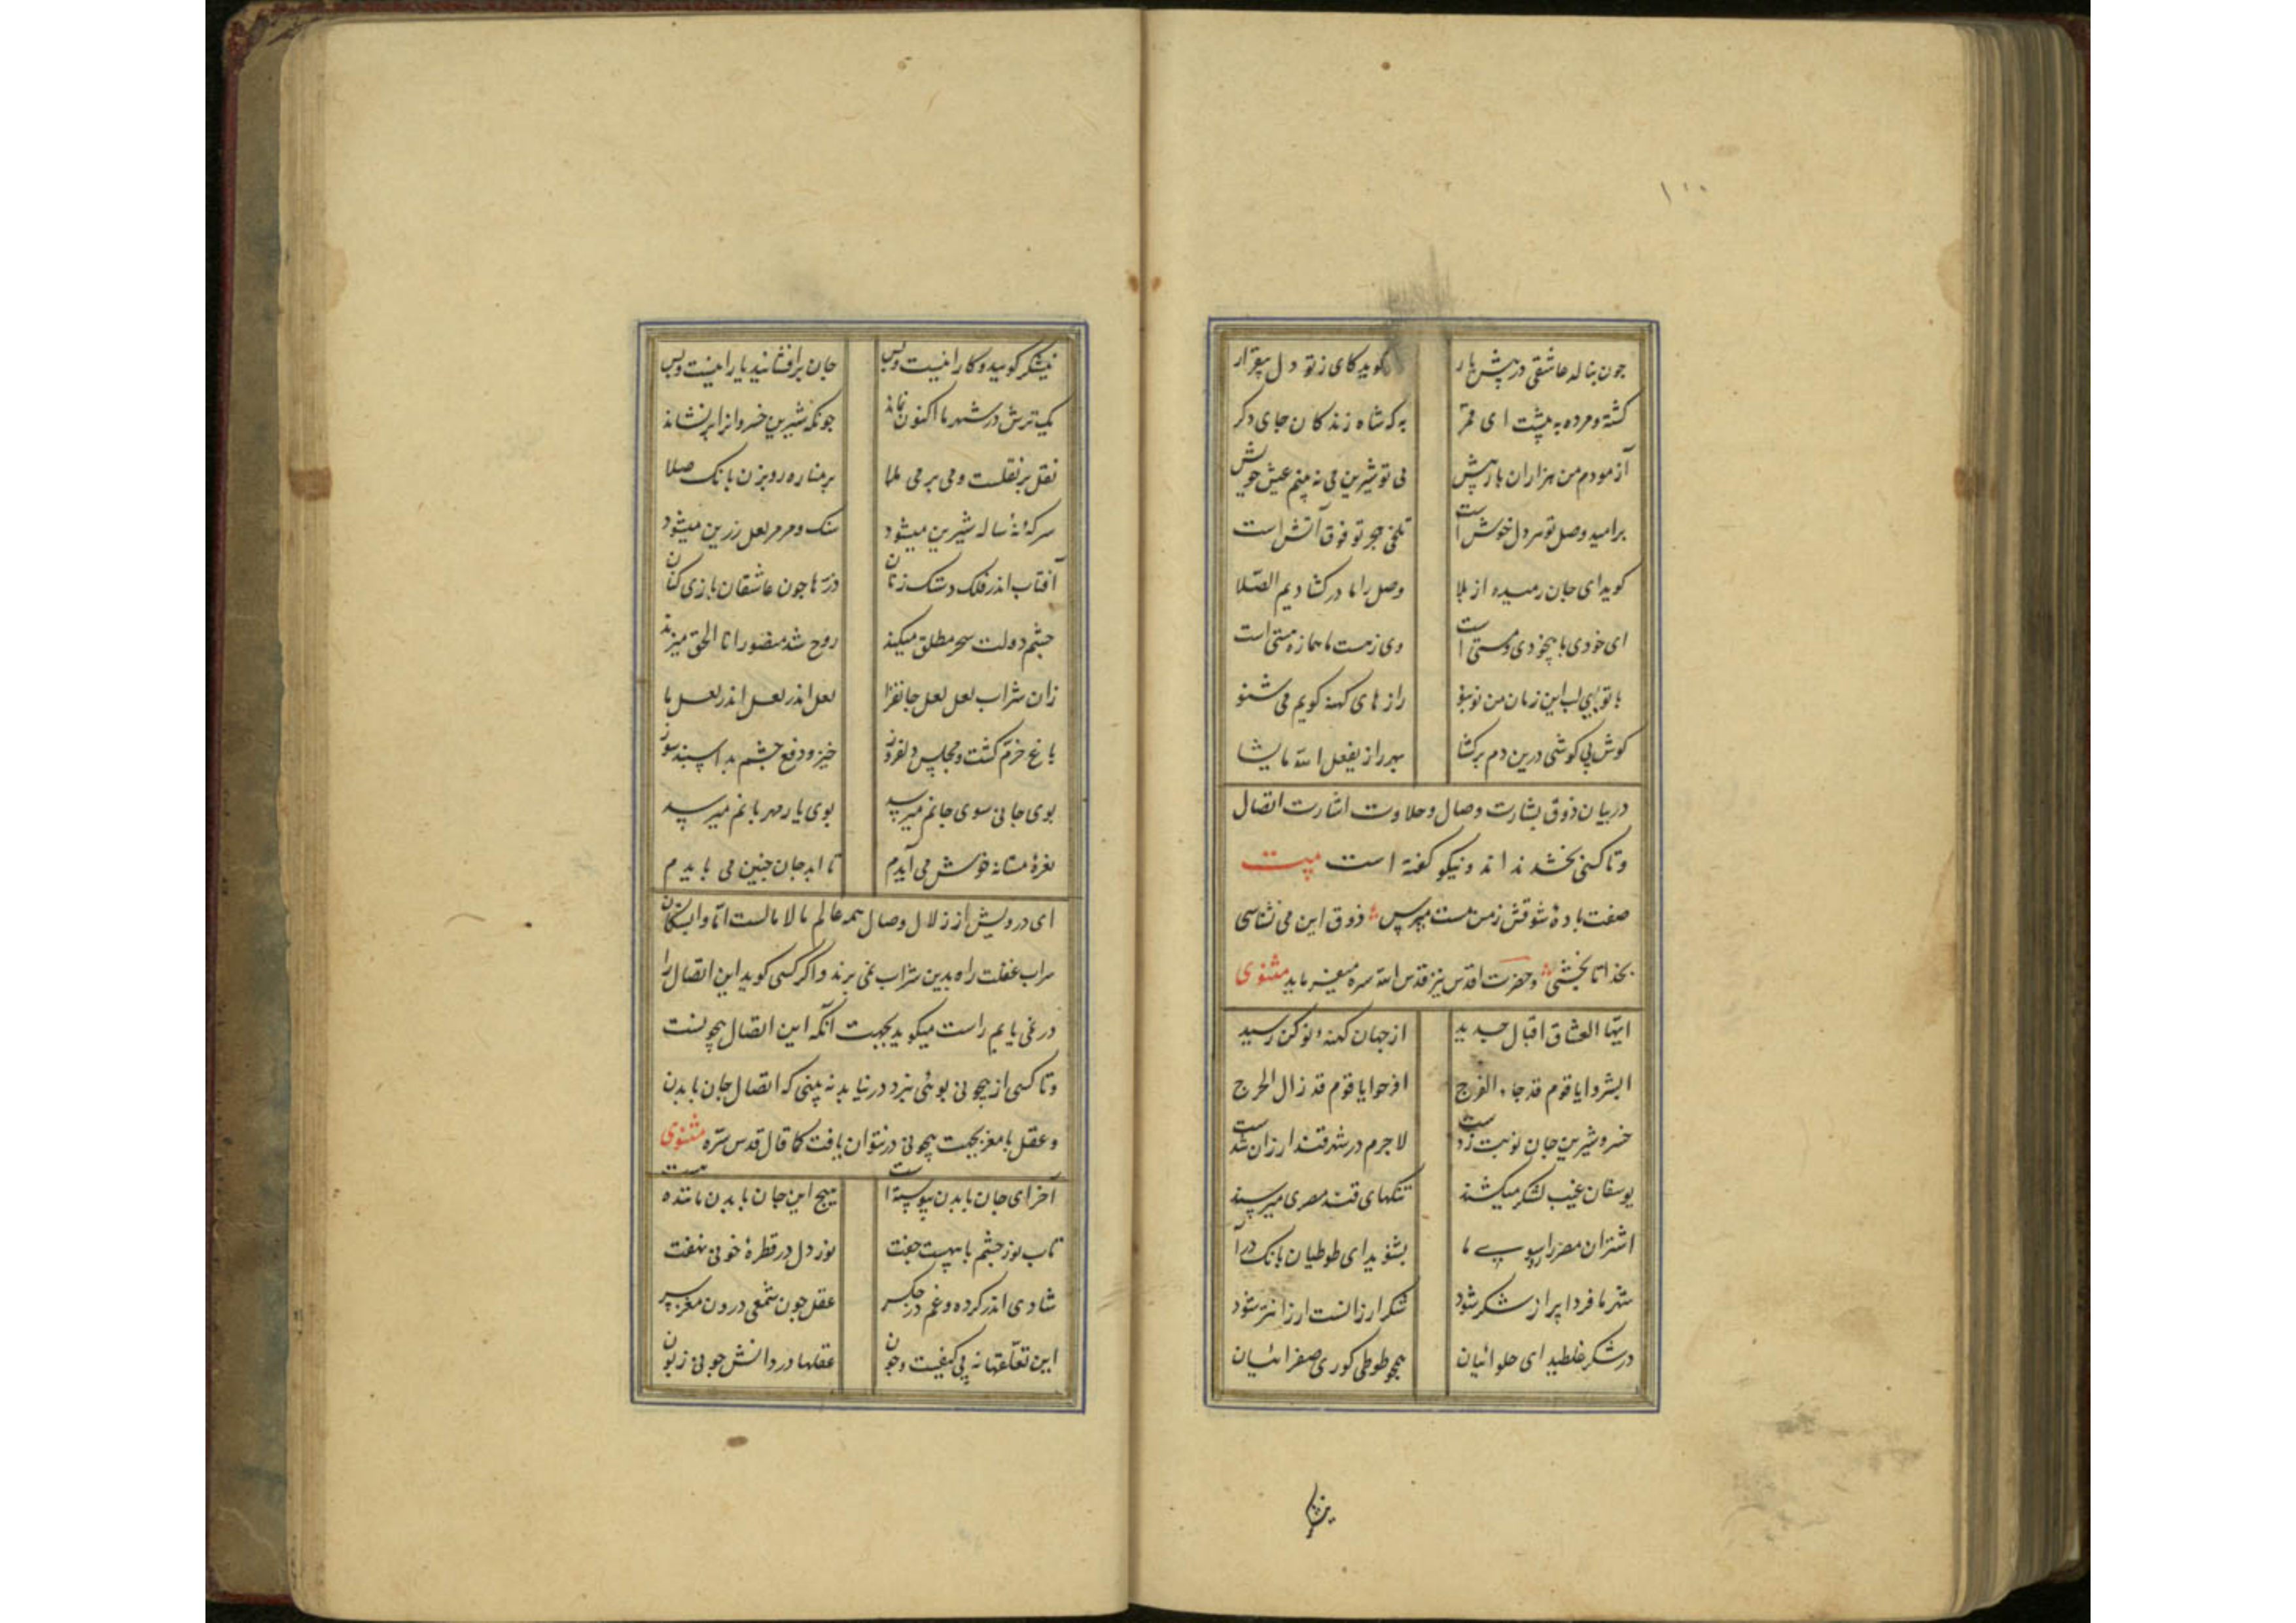 ۱۰۰
چون بناله عاشقی در پیش یار کوید کای ز تو دل بیقرار
کشته و مرده به پیشت ای قمر به که شاه زندکان جای دکر
آزمودم من هزاران بار بیش بی تو شیرین می نه بینم عیش خویش
بر امید وصل تو مردن خوش است تلخی هجر تو فوق آتش است
کوید ای جان رمیده از بلا وصل را ما در کشادیم الصّلا
ای خودی ما بیخودی و مستی است وی ز هست ما هماره هستی است
با تو بی لب این زمان من نو بنو رازهای کهنه کویم می شنو
کوش بی کوشی درین دم بر کشا بهر راز یفعل الله ما یشا
در بیان ذوق بشارت وصال و حلاوت اشارت اتصال
و تا کسی نچشد نداند و نیکو کفته است بیت
صفت بادهٔ شوقش ز من مست مپرس ذوق این می نشناسی
بخدا تا نچشی و حضرت اقدس نیز قدس الله سره میفرماید مثنوی
ایها العشاق اقبال جدید از جهان کهنه و نوکن رسید
ابشروا یا قوم قد جاء الفرج افرحوا یا قوم قد زال الحرج
خسرو شیرین جان نوبت زدست لاجرم در شهر قند ارزان شدست
یوسفان غیب لشکر میکشند تنکهای قند مصری میرسند
اشتران مصر را رو سوی ما بشنوید ای طوطیان بانک درآ
شهر ما فردا پر از شکر شود شکر ارزانست ارزانتر شود
در شکر غلطید ای حلوائیان همچو طوطی کوری صفرائیان
نیشکر
نیشکر کوبید و کار اینست و بس جان بر افشانید یار اینست و بس
یک ترش در شهر ما اکنون نماند چونکه شیرین خسروانرا بر نشاند
نقل بر نقلست و می بر می هلا بر مناره رو بزن بانک صلا
سرکهٔ نه ساله شیرین میشود سنک و مرمر لعل زرین میشود
آفتاب اندر فلک دستک زنان ذرّها چون عاشقان بازی کنان
چشم دولت سحر مطلق میکند روح شد منصور انا الحق میزند
زان شراب لعل لعل جانفزا لعل اندر لعل اندر لعل ما
باغ خرّم کشت و مجلس دلفروز خیز و دفع چشم بد اسپند سوز
بوی جانی سوی جانم میرسد بوی یار مهربانم میرسد
نعرهٔ مستانه خوش می آیدم تا ابد جان چنین می بایدم
ای درویش از زلال وصال همه عالم مالامالست امّا وابستکان
سراب غفلت راه بدین شراب نمی برند و اکر کسی کوید این اتصال را
در نمی یابم راست میکوید بجهت آنکه این اتصال بیچونست
و تا کسی از بیچونی بوئی نبرد در نیابد نه بینی که اتصال جان با بدن
و عقل با مغز بجهت بیچونی در نتوان یافت کما قال قدس سرّه مثنوی
آخر ای جان با بدن پیوسته است هیچ این جان با بدن ماننده هست
تاب نور چشم با پیهست جفت نور دل در قطرهٔ خونی نهفت
شادی اندر کرده و غم در جکر عقل چون شمعی درون مغز سر
این تعلّقها نه بی کیفست و چون عقلها در دانش چونی زبون